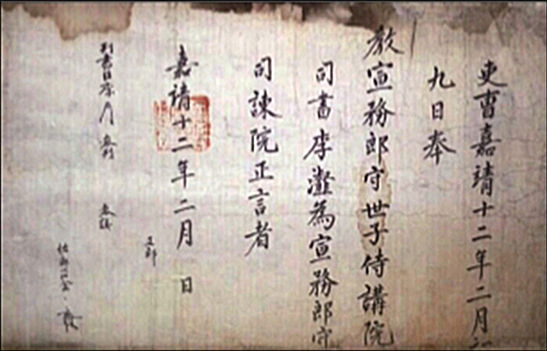 吏曹嘉靖十二年二月初
九日奉
教宣務郎守世子侍講院
司書李瀣為宣務郎守
司諫院正言者
嘉靖十二年二月 日
正郎
參議
佐郎臣